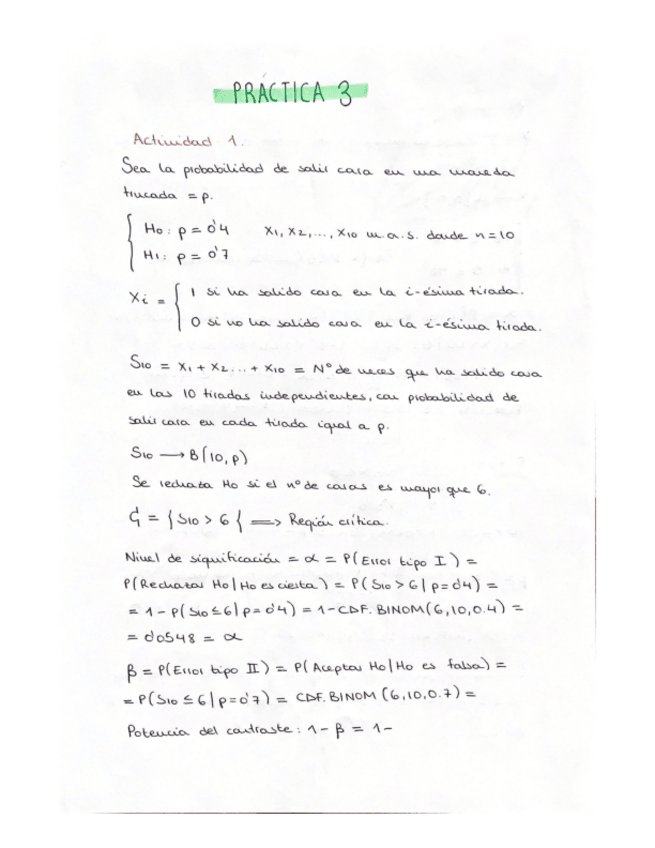 PRÁCTICA 3
Actividad 1.
Sea la probabilidad de salir cara en una moneda
trucada = p.
H0: p = 0'4    X1, X2, ..., X10 m.a.s. donde n=10
H1: p = 0'7
Xi = { 1 si ha salido cara en la i-ésima tirada.
0 si no ha salido cara en la i-ésima tirada.
S10 = X1 + X2 ... + X10 = Nº de veces que ha salido cara
en las 10 tiradas independientes, con probabilidad de
salir cara en cada tirada igual a p.
S10 → B(10,p)
Se rechaza H0 si el nº de caras es mayor que 6.
C1 = {S10 > 6} ⟹ Región crítica.
Nivel de significación = α = P(Error tipo I) =
P(Rechazar H0 | H0 es cierta) = P(S10 > 6 | p = 0'4) =
= 1 - P(S10 ≤ 6 | p = 0'4) = 1 - CDF.BINOM(6,10,0.4) =
= 0'0548 = α
β = P(Error tipo II) = P(Aceptar H0 | H0 es falsa) =
= P(S10 ≤ 6 | p = 0'7) = CDF.BINOM (6,10,0.7) =
Potencia del contraste: 1 - β = 1 -